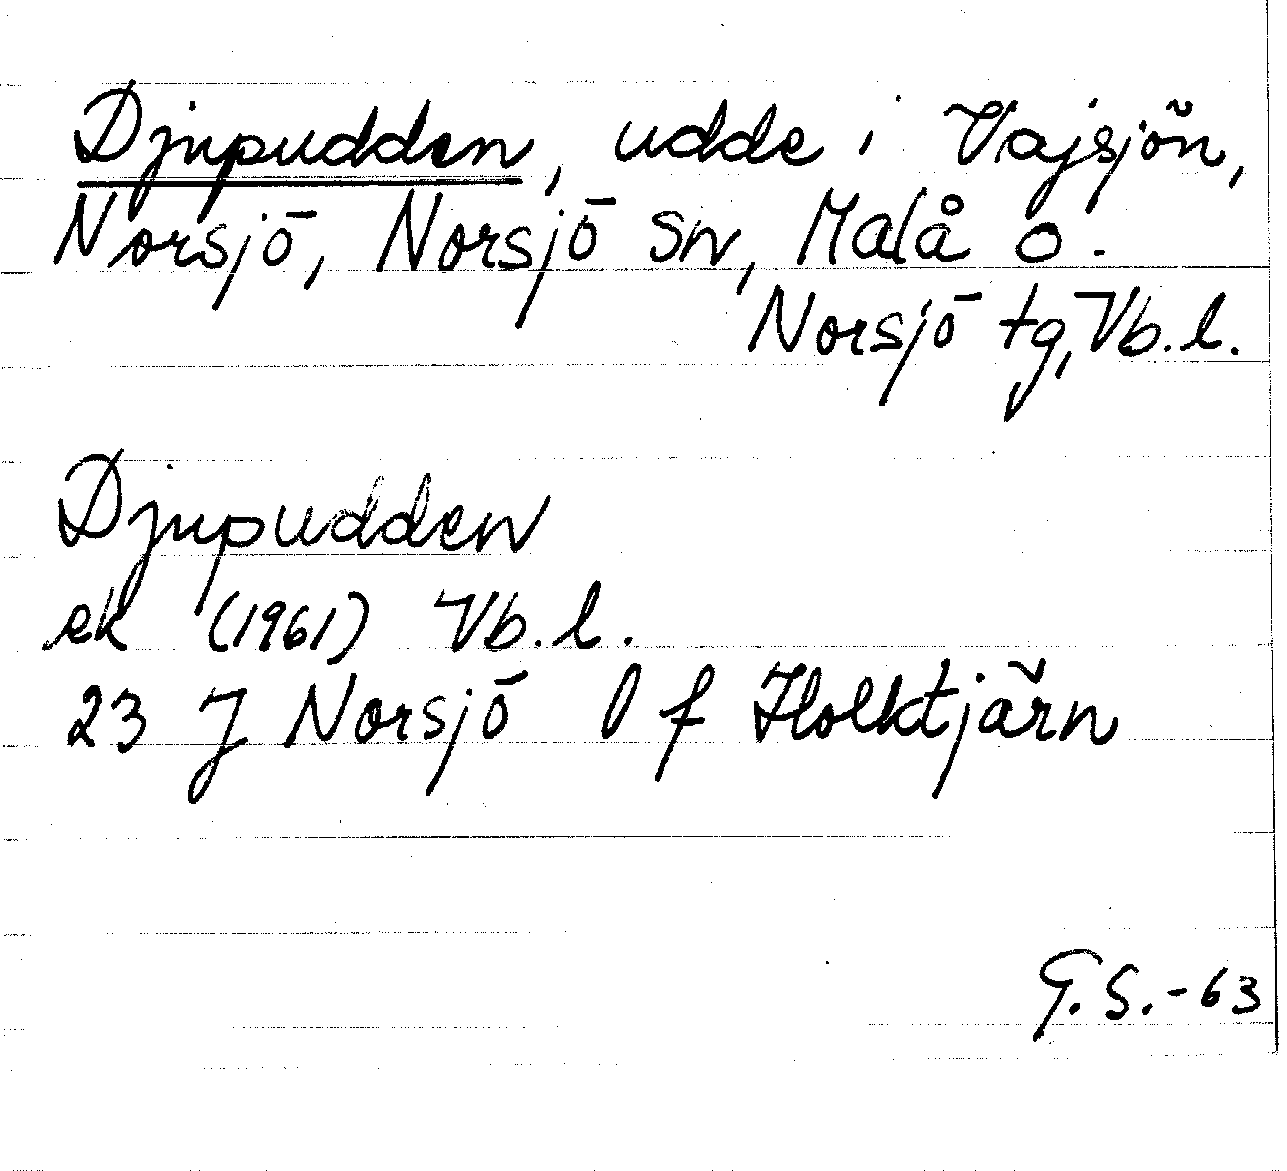 Djupudden, udde i Vajsjön,
Norsjö, Norsjö sn, Malå o.
Norsjö tg, Vb.l.
Djupudden
ek (1961) Vb.l.
23 J Norsjö l f Holktjärn
G.S.-63